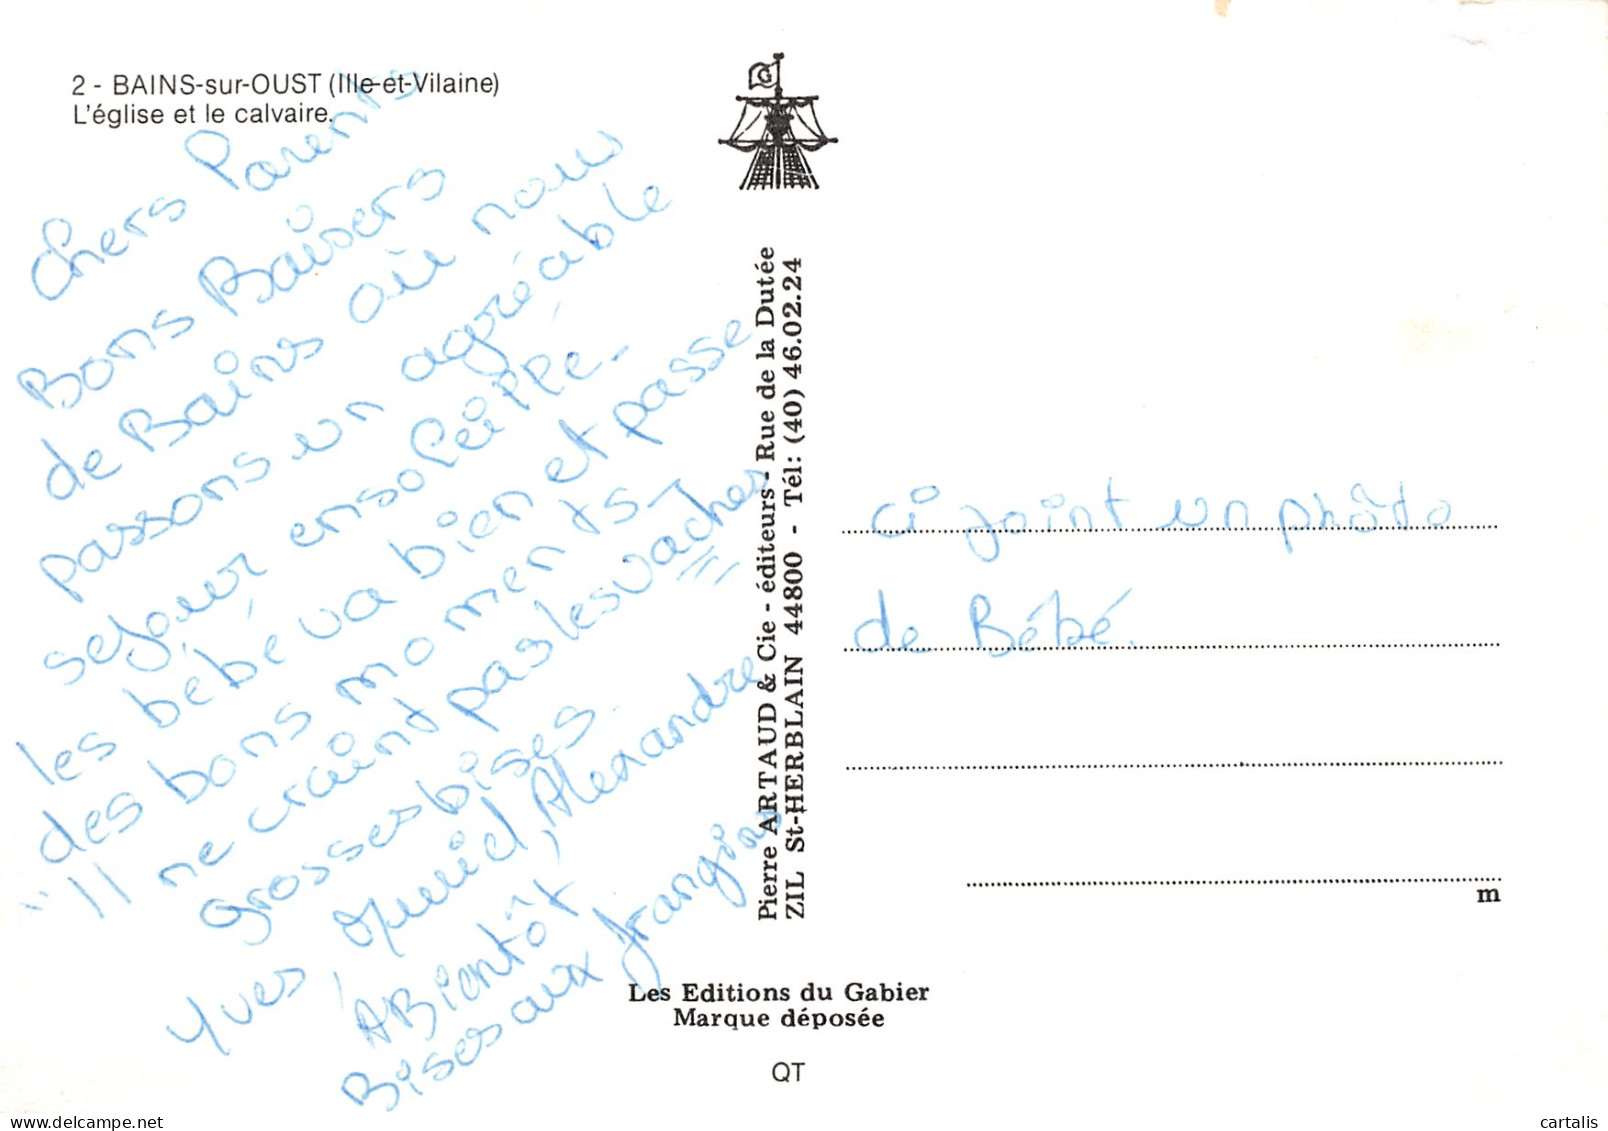 2 - BAINS-sur-OUST (Ille-et-Vilaine)
L'église et le calvaire.
Chers Parents
Bons Baisers
de Bains où nous
passons un agréable
sejour ensoleillé.
les bébé va bien et passe
des bons moments -
"Il ne craint pas les vaches
Grosses bises.
Yves, Muriel, Alexandre
A Bientôt
Bises aux frangins
G
Pierre ARTAUD & Cie - éditeurs - Rue de la Dutée
ZIL St-HERBLAIN 44800 - Tél: (40) 46.02.24
ci joint un phôto
de Bébé.
m
Les Editions du Gabier
Marque déposée
QT
https://www.delcampe.net
cartalis